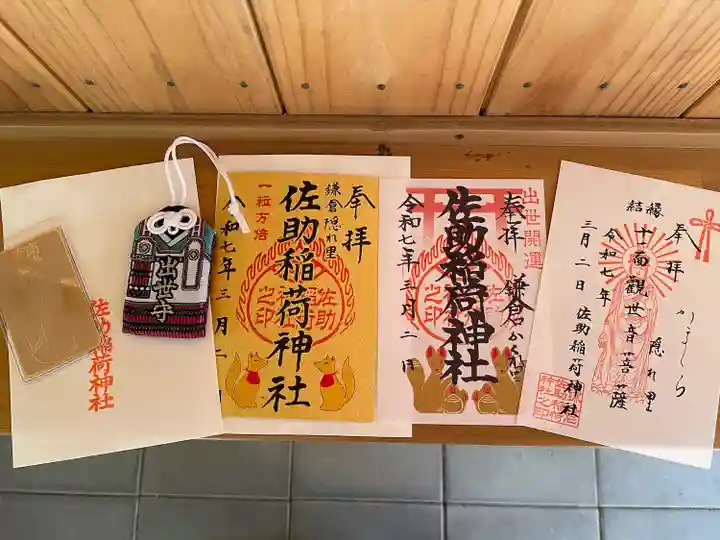 佐助稲荷神社
出世守
奉拝
鎌倉隠れ里
佐助稲荷神社
一粒万倍
令和七年三月二日
佐助稲荷神社之印
出世開運
奉拝
鎌倉かくれ里
佐助稲荷神社
令和七年三月二日
奉拝
かまくら
隠れ里
結縁
十一面観世音菩薩
令和七年
三月二日 佐助稲荷神社